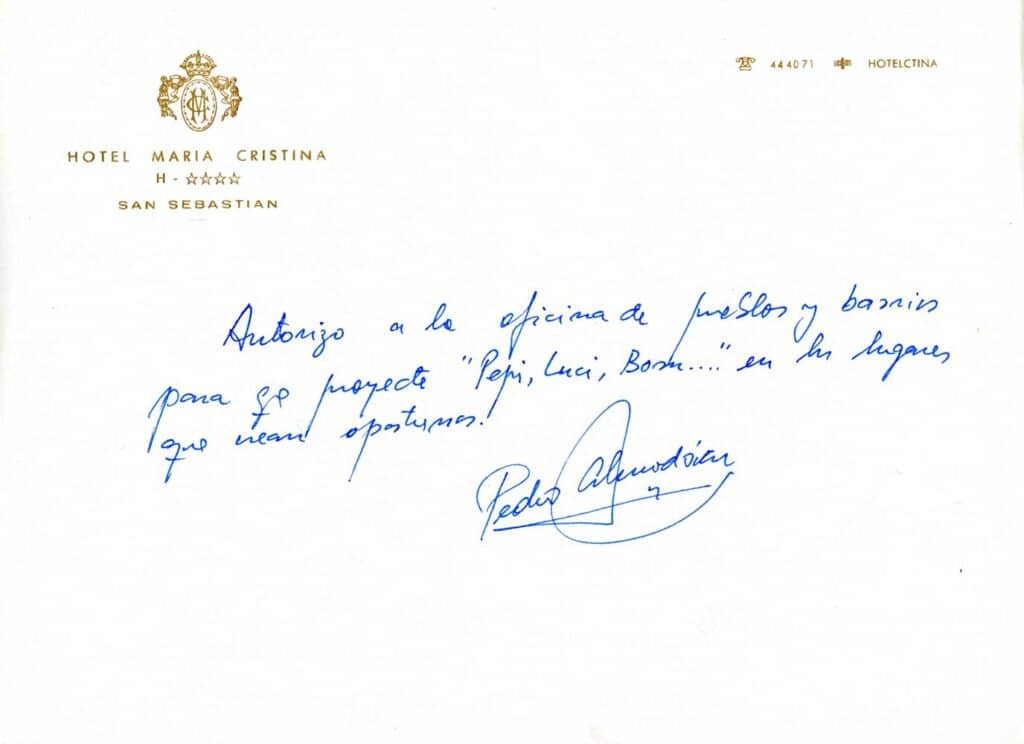 444071 HOTELCTINA
HOTEL MARIA CRISTINA
H - ☆☆☆☆
SAN SEBASTIAN
Autorizo a la oficina de pueblos y barrios
para qe proyecte "Pepi, Luci, Bom...." en los lugares
que crean oportunos.
Pedro Almodóvar